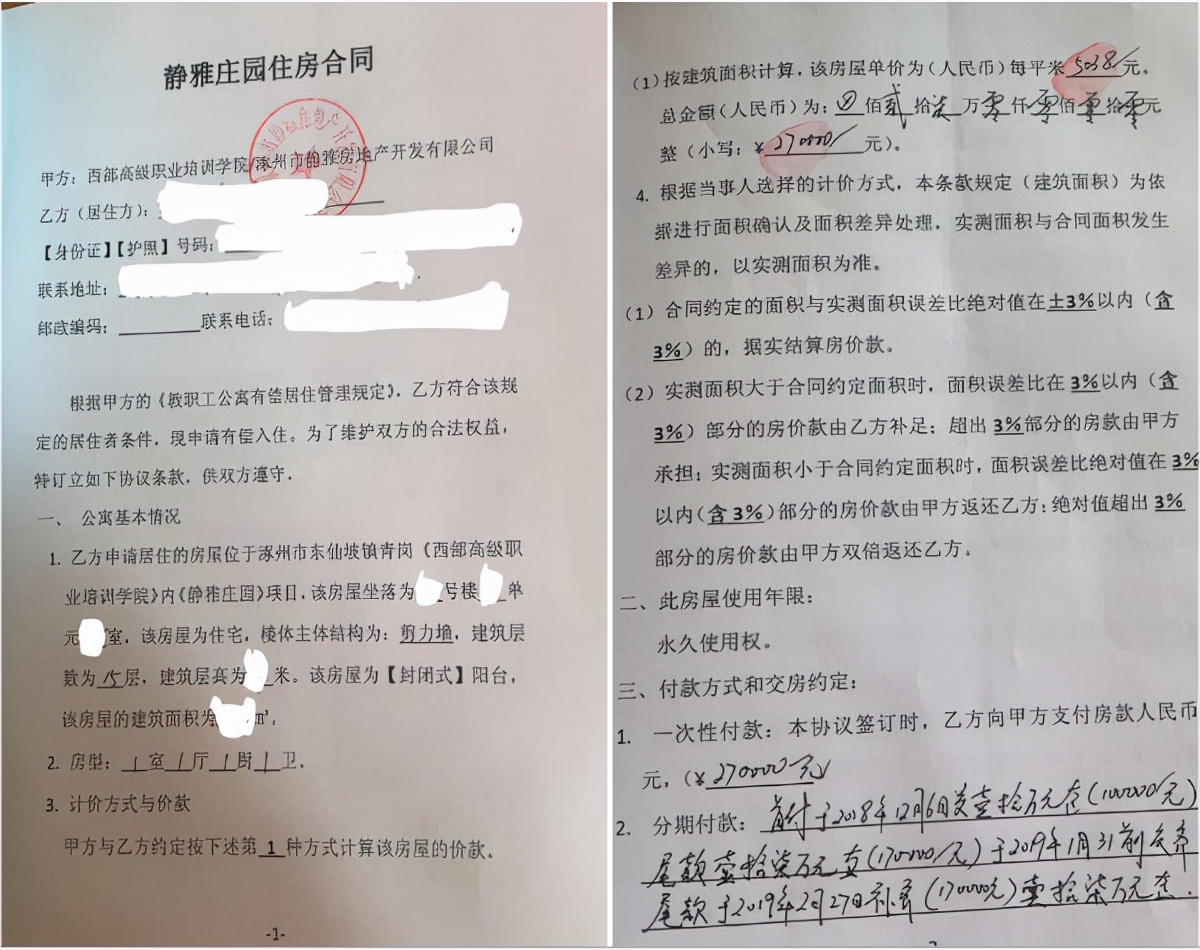 静雅庄园住房合同
甲方：西部高级职业培训学院 涿州市静雅房地产开发有限公司
乙方（居住方）：
【身份证】【护照】号码：
联系地址：
邮政编码：　　　　联系电话：
根据甲方的《教职工公寓有偿居住管理规定》，乙方符合该规
定的居住者条件，现申请有偿入住。为了维护双方的合法权益，
特订立如下协议条款，供双方遵守。
一、 公寓基本情况
1. 乙方申请居住的房屋位于涿州市东仙坡镇青岗《西部高级职
业培训学院》内《静雅庄园》项目，该房屋坐落为 号楼 单
元 室，该房屋为住宅，楼体主体结构为：剪力墙，建筑层
数为 15 层，建筑层高为 米。该房屋为【封闭式】阳台，
该房屋的建筑面积为 m²；
2. 房型： 1 室 1 厅 1 厨 1 卫。
3. 计价方式与价款
甲方与乙方约定按下述第 1 种方式计算该房屋的价款。
-1-
（1）按建筑面积计算，该房屋单价为（人民币）每平米 5038/ 元。
总金额（人民币）为： 佰 贰 拾 柒 万 零 仟 零 佰 零 拾 零 元
整（小写：¥ 270000/ 元）。
4. 根据当事人选择的计价方式，本条款规定（建筑面积）为依
据进行面积确认及面积差异处理，实测面积与合同面积发生
差异的，以实测面积为准。
（1）合同约定的面积与实测面积误差比绝对值在±3%以内（含
3%）的，据实结算房价款。
（2）实测面积大于合同约定面积时，面积误差比在 3%以内（含
3%）部分的房价款由乙方补足；超出 3%部分的房款由甲方
承担；实测面积小于合同约定面积时，面积误差比绝对值在 3%
以内（含 3%）部分的房价款由甲方返还乙方；绝对值超出 3%
部分的房价款由甲方双倍返还乙方。
二、此房屋使用年限：
永久使用权。
三、付款方式和交房约定：
1. 一次性付款：本协议签订时，乙方向甲方支付房款人民币
元，（¥ 270000元）
2. 分期付款： 首付于2018年12月6日交壹拾万元整（100000/元）
尾款壹拾柒万元整（170000/元）于2019年1月31前交齐
尾款于2019年2月27日补齐（170000元）壹拾柒万元整.